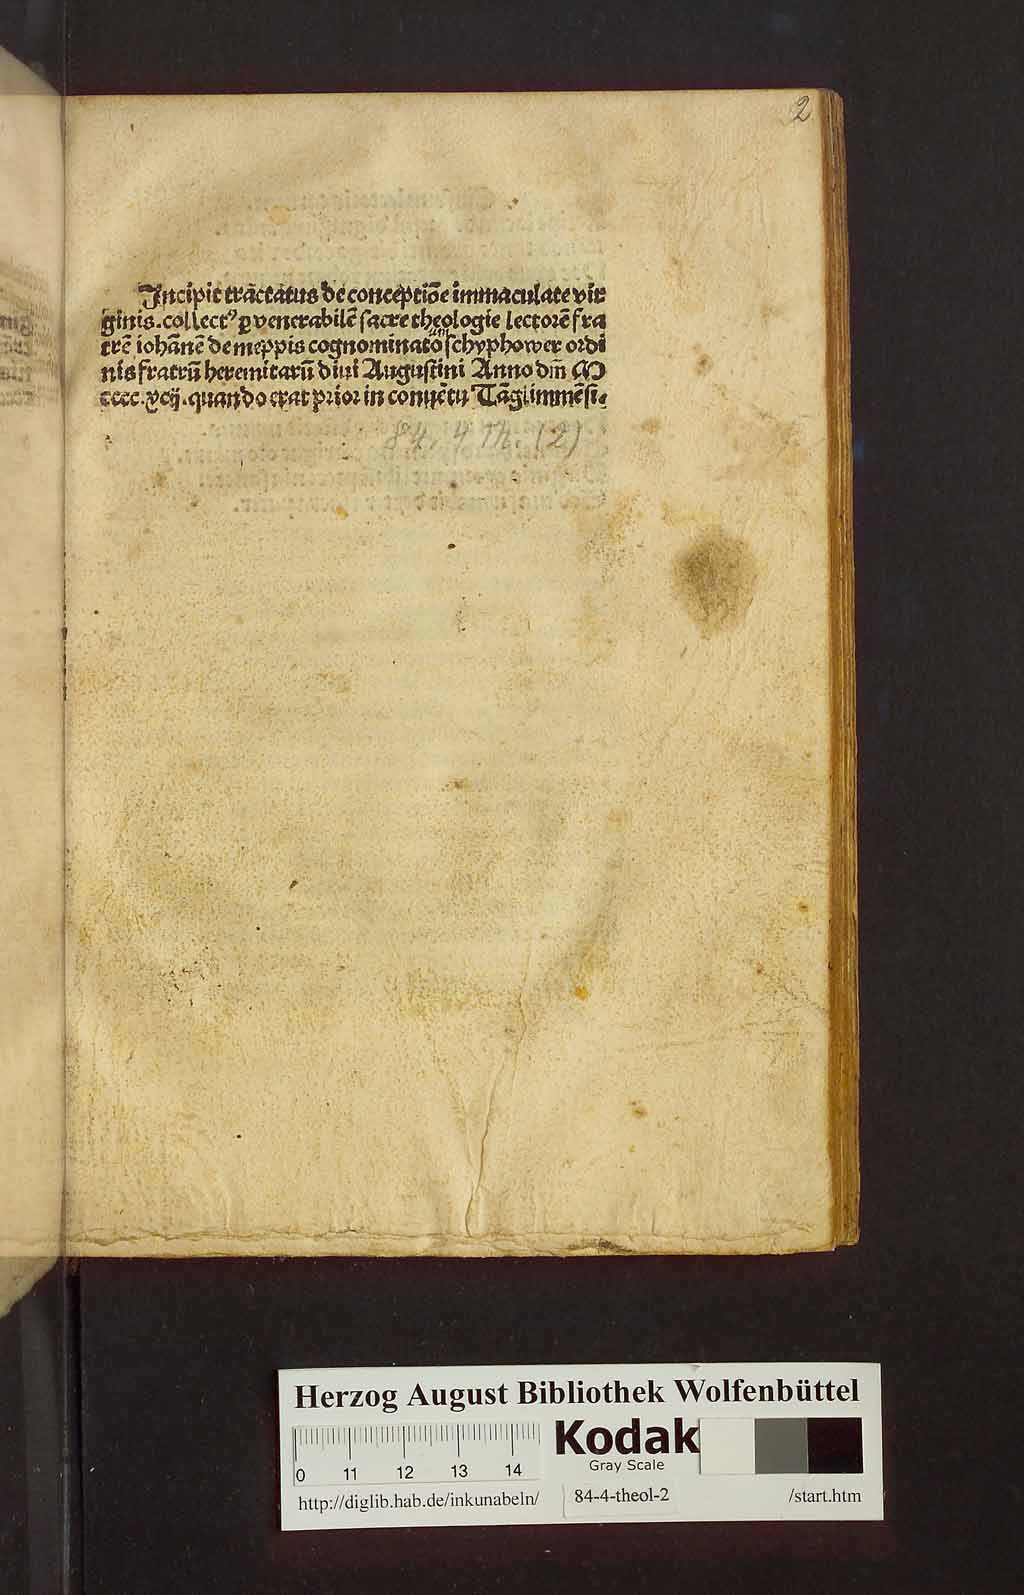 2
Incipit tractatus de conceptiōe immaculate vir
ginis. collectꝰ ꝑ venerabilē sacre theologie lectorē fra
trē iohānē de meppis cognominatō schyphower ordi
nis fratrū heremitarū diui Augustini Anno dm̄ M
cccc.xcij. quando erat prior in conuētu Tāglimmēsi.
84. 4 Th. (2)
Herzog August Bibliothek Wolfenbüttel
0 11 12 13 14
Kodak
Gray Scale
http://diglib.hab.de/inkunabeln/ 84-4-theol-2 /start.htm